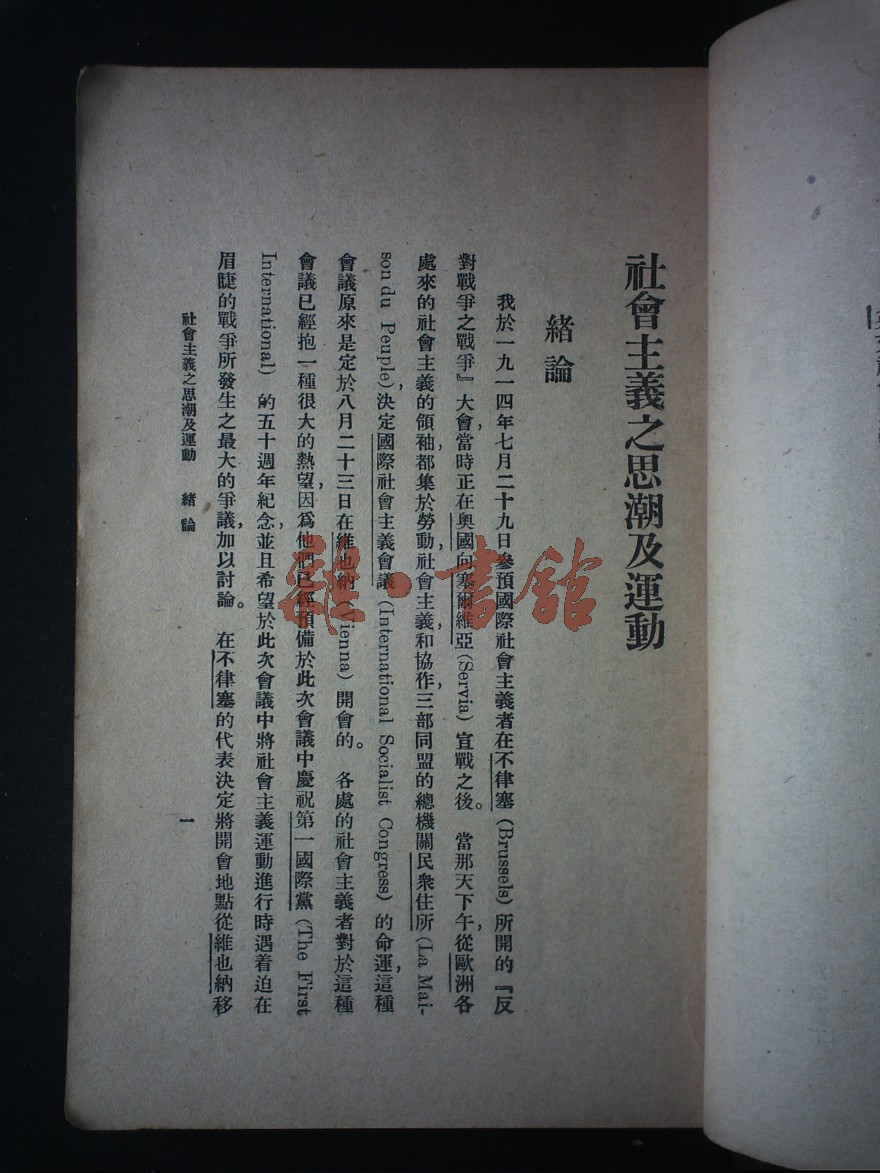 社會主義之思潮及運動
緒論
我於一九一四年七月二十九日參預國際社會主義者在不律塞(Brussels)所開的『反
對戰爭之戰爭』大會，當時正在奧國向塞爾維亞(Servia)宣戰之後。當那天下午，從歐洲各
處來的社會主義的領袖，都集於勞動，社會主義和協作三部同盟的總機關民衆住所(La Mai-
son du Peuple)，決定國際社會主義會議(International Socialist Congress)的命運，這種
會議原來是定於八月二十三日在維也納(Vienna)開會的。各處的社會主義者對於這種
會議已經抱一種很大的熱望，因爲他們已經預備於此次會議中慶祝第一國際黨(The First
International)的五十週年紀念，並且希望於此次會議中將社會主義運動進行時遇着迫在
眉睫的戰爭所發生之最大的爭議，加以討論。在不律塞的代表決定將開會地點從維也納移
社會主義之思潮及運動 緒論 一
書館